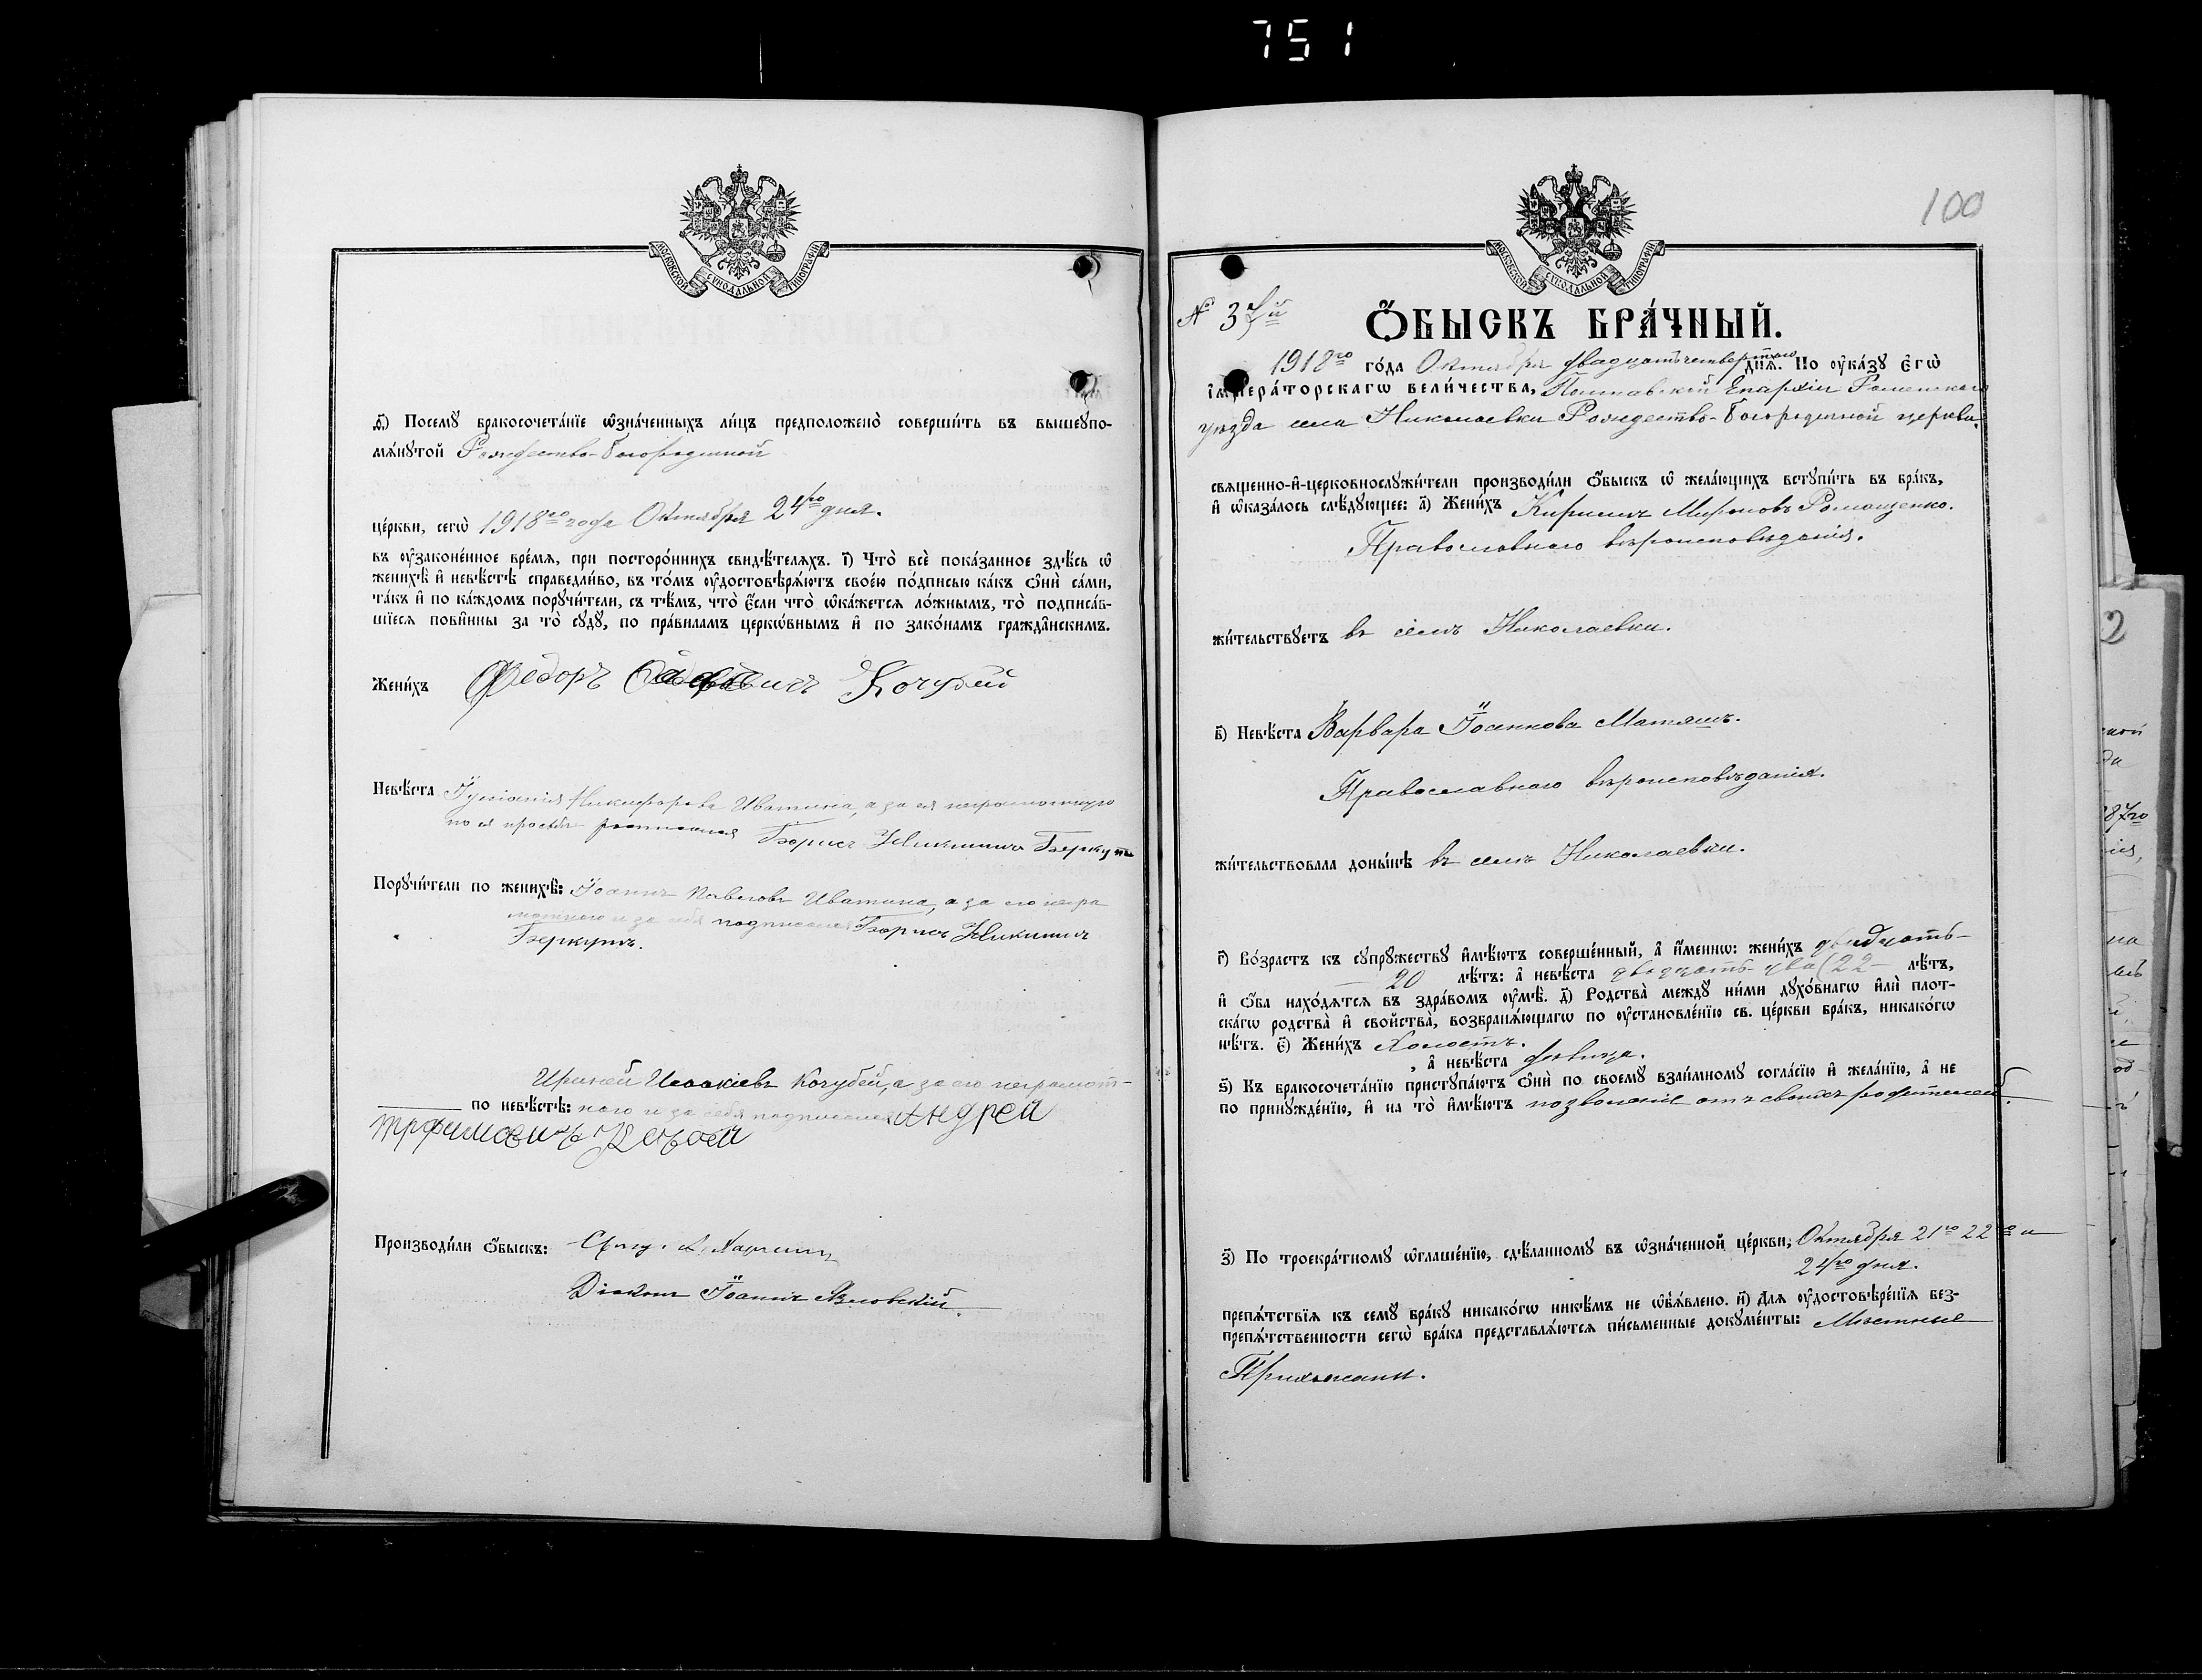 751
МОСКОВСКОЙ СУНОДАЛЬНОЙ ТИПОГРАФІИ
д҃) Посемꙋ̀ бракосочета́нїе ѡ҆зна́ченныхъ ли́цъ предположено̀ соверши́ть въ вышеꙋпо-
мѧ́нꙋтой Рождество-Богородичной
це́ркви, сегѡ̀ 1918го года Октября 24го дня.
въ ᲂу҆законе́нное вре́мѧ, при посторо́ннихъ свидѣ́телѧхъ. і҃) Что̀ всѐ пока́занное здѣ́сь ѡ҆
женихѣ̀ и҆ невѣ́стѣ справедли́во, въ то́мъ ᲂу҆достовѣрѧ́ютъ свое́ю по́дписью ка́къ ѻ҆нѝ са́ми,
та́къ и҆ по ка́ждомъ порꙋчи́тели, съ тѣ́мъ, что̀ є҆́сли что̀ ѡ҆ка́жетсѧ ло́жнымъ, то̀ подписа́в-
шїесѧ пови́нны за то̀ сꙋдꙋ̀, по пра́виламъ церко́внымъ и҆ по зако́намъ гражда́нскимъ.
Жени́хъ Федоръ Кочубей
Невѣ́ста Никифорова Иватина, а за ея неграмотную
по ея просьбѣ росписался Борисъ Никитичъ Беркутъ
Порꙋчи́тели по женихѣ̀: Іоаннъ Павловъ Иватина, а за его негра
мотнаго и за себя подписался Борисъ Никитичъ
Беркутъ.
Ириней Исаакіевъ Кочубей, а за его неграмот-
по невѣ́стѣ: наго и за себя подписался Андрей
Производи́ли ѻ҆́быскъ: Свящ.
Діаконъ Іоаннъ
100
МОСКОВСКОЙ СУНОДАЛЬНОЙ ТИПОГРАФІИ
№ 37й
Ѻ҆́БЫСКЪ БРА́ЧНЫЙ.
1918го го́да Октября двадцать четвертаго днѧ̀. По ᲂу҆ка́зꙋ Є҆гѡ̀
І҆мпера́торскагѡ вели́чества, Полтавской Епархіи Роменскаго
уѣзда села Николаевки Рождество-Богородичной церкви.
свѧщенно-и҆-церковнослꙋжи́тели производи́ли ѻ҆́быскъ ѡ҆ жела́ющихъ встꙋпи́ть въ бра́къ,
и҆ ѡ҆каза́лось слѣ́дꙋющее: а҃) Жени́хъ Кириллъ Мироновъ Ромащенко.
Православнаго вѣроисповѣданія.
жи́тельствꙋетъ въ селѣ Николаевки.
в҃) Невѣ́ста Варвара Іоаннова Матяшъ.
Православнаго вѣроисповѣданія.
жи́тельствовала доны́нѣ въ селѣ Николаевки.
г҃) Во́зрастъ къ сꙋпрꙋ́жествꙋ и҆мѣ́ютъ соверше́нный, а҆ и҆́меннѡ: жени́хъ двадцать-
20 лѣ́тъ: а҆ невѣ́ста двадцать два (22- лѣ́тъ,
и҆ ѻ҆́ба нахо́дѧтсѧ въ здра́вомъ ᲂу҆мѣ̀. д҃) Родства̀ междꙋ ни́ми дꙋхо́внагѡ и҆лѝ плот-
ска́гѡ родства̀ и҆ свойства̀, возбранѧ́ющагѡ по ᲂу҆становле́нїю св. це́ркви бра́къ, никако́гѡ
нѣ́тъ. є҃) Жени́хъ холостъ.
, а҆ невѣ́ста дѣвица.
ѕ҃) Къ бракосочета́нїю пристꙋпа́ютъ ѻ҆нѝ по своемꙋ̀ взаи́мномꙋ согла́сїю и҆ жела́нїю, а҆ не
по принꙋжде́нїю, и҆ на то̀ и҆мѣ́ютъ позволеніе отъ своихъ родителей.
з҃) По троекра́тномꙋ ѡ҆глаше́нїю, сдѣ́ланномꙋ въ ѡ҆зна́ченной це́ркви, Октября 21го 22го и
24го дня.
препѧ́тствїѧ къ семꙋ̀ бра́кꙋ никако́гѡ никѣ́мъ не ѡ҆б̾ѧ́влено. и҃) Длѧ ᲂу҆достовѣре́нїѧ без-
препѧ́тственности сегѡ̀ бра́ка представлѧ́ютсѧ пи́сьменные докꙋме́нты: Мѣстные
Прихожани.